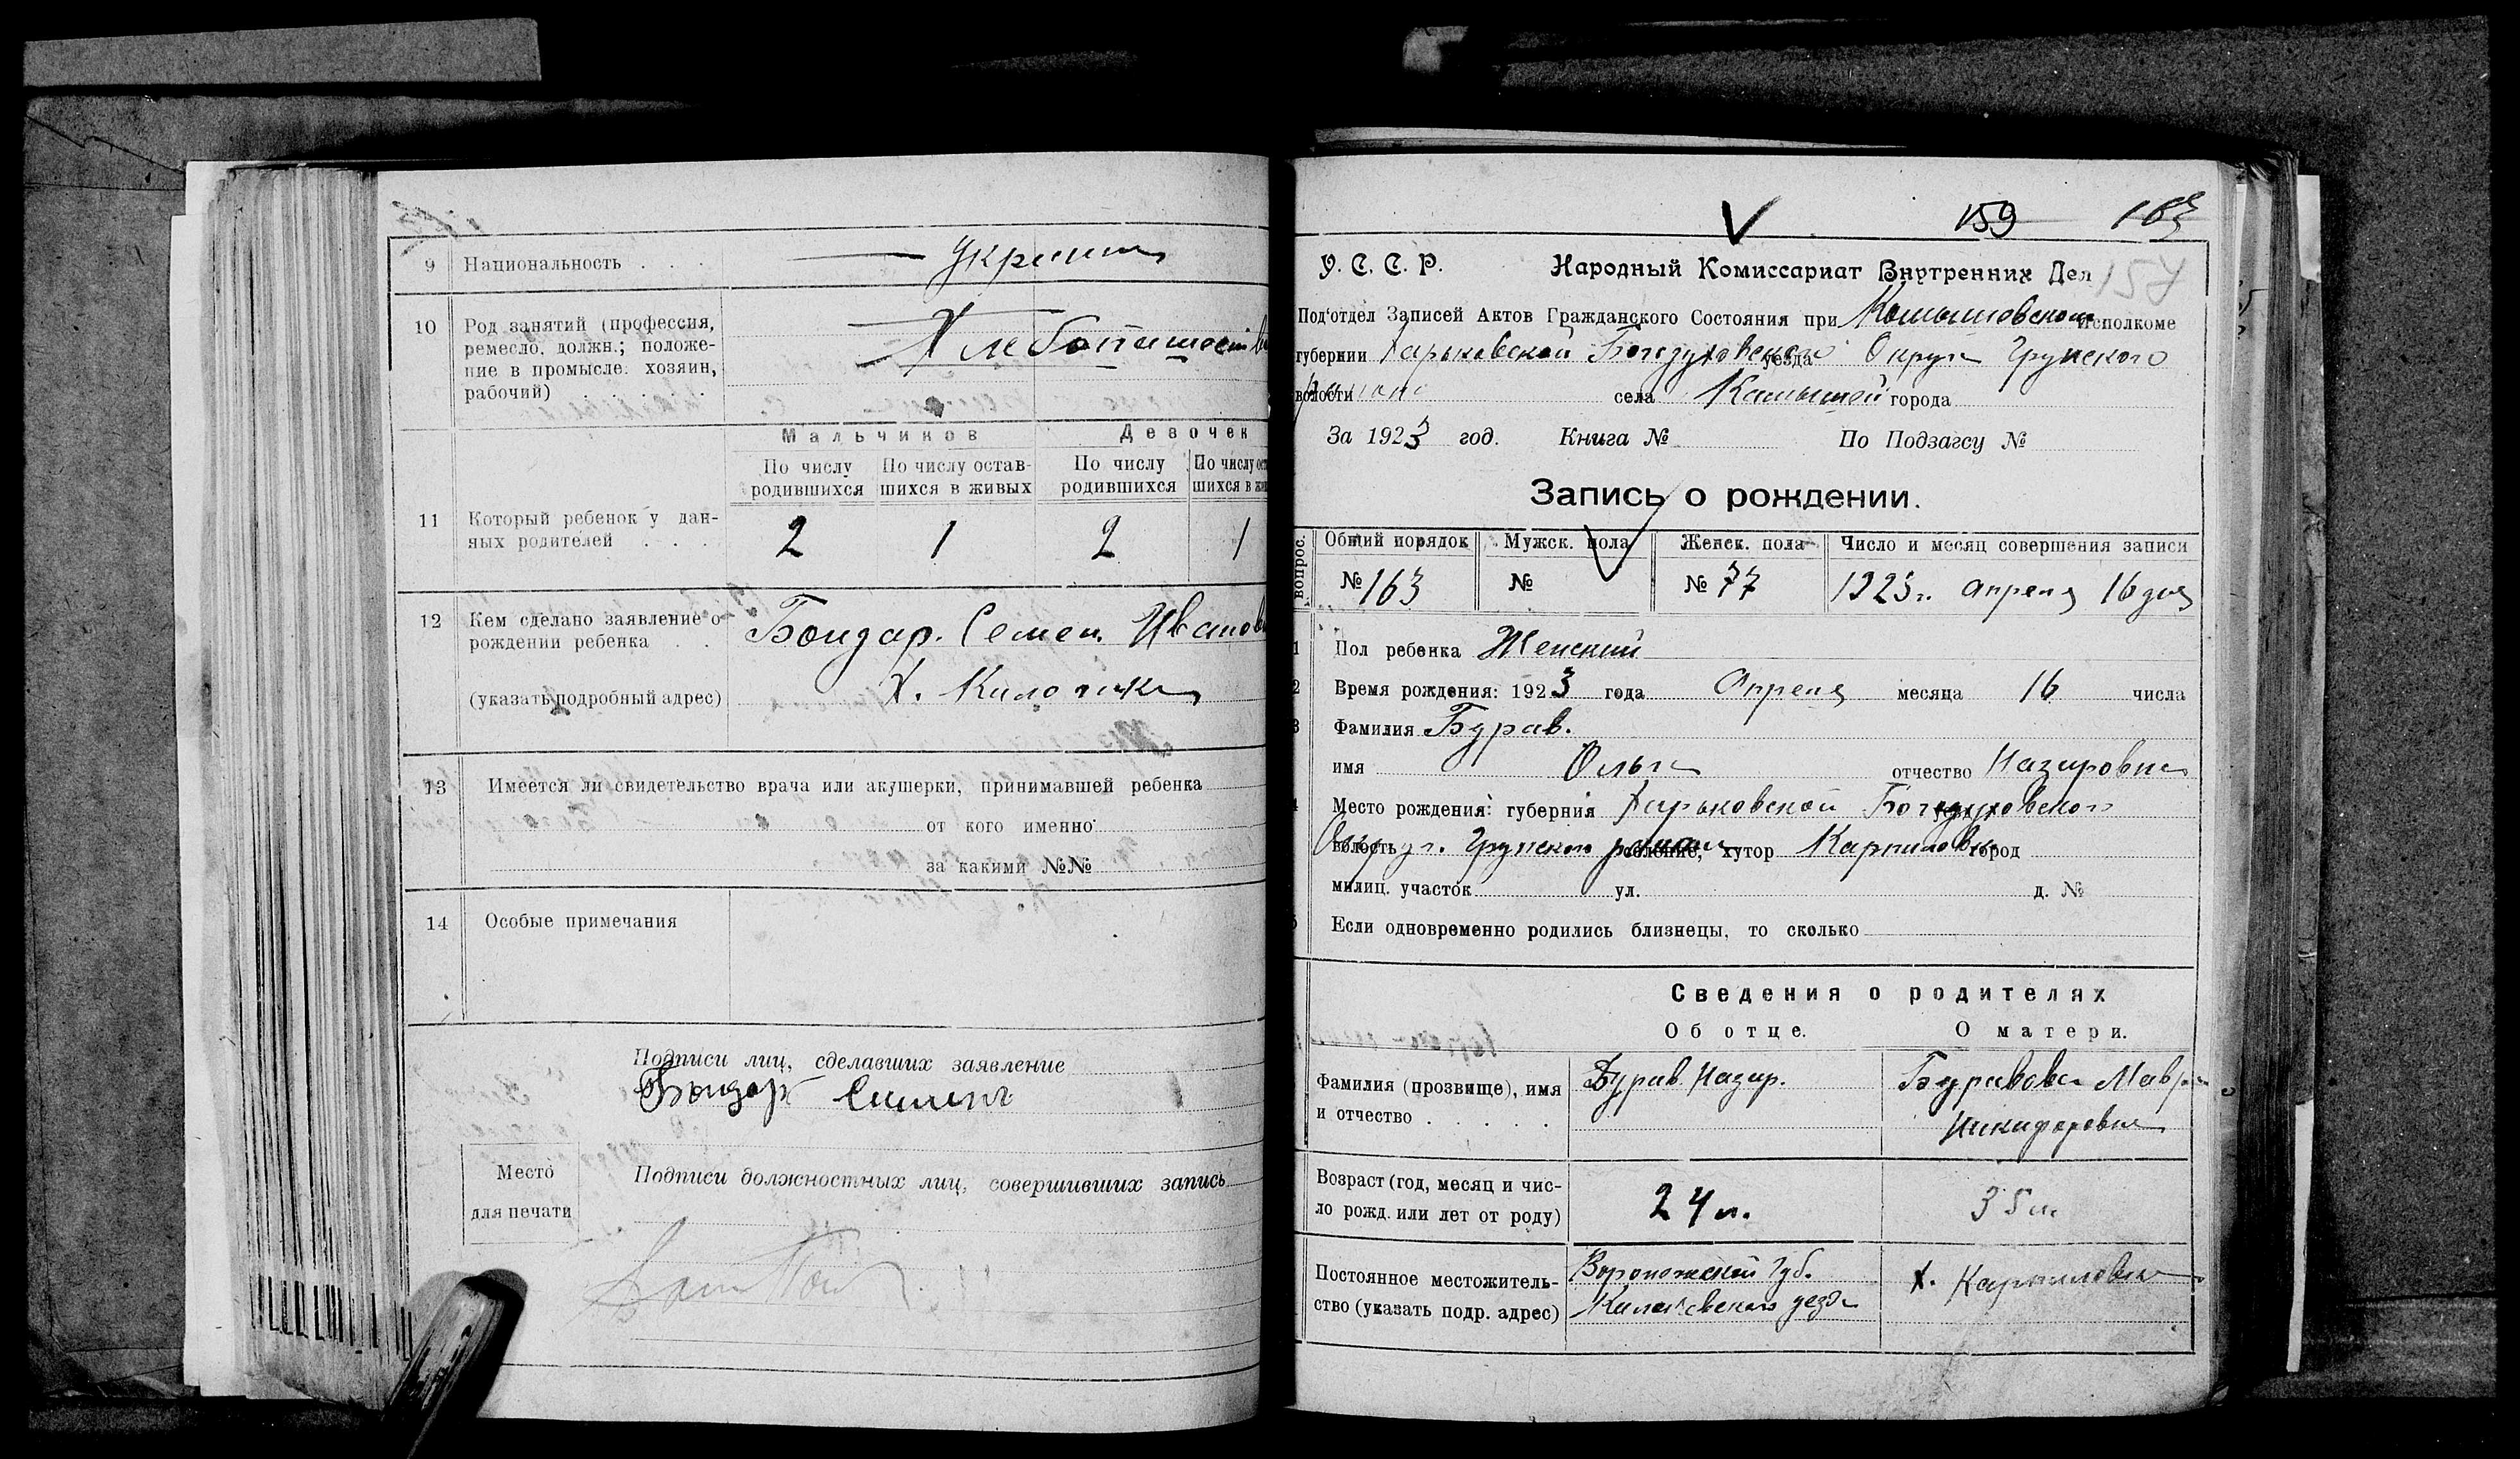 9 Национальность . . . Украин
10 Род занятий (профессия,
ремесло, должн.; положе-
ние в промысле: хозяин,
рабочий) . . . . .
Хлебопашество
Мальчиков Девочек
По числу родившихся По числу остав-шихся в живых По числу родившихся По числу ос шихся в жи
11 Который ребенок у дан-
ных родителей . . . 2 1 2 1
12 Кем сделано заявление о
рождении ребенка . . Бондар. Семен. Иванов
(указать подробный адрес) Х.
13 Имеется ли свидетельство врача или акушерки, принимавшей ребенка
от кого именно
за какими №№
14 Особые примечания
Подписи лиц, сделавших заявление
Бондар
Место
для печати
Подписи должностных лиц, совершивших запись
159 163
157
У. С. С. Р. Народный Комиссариат Внутренних Дел
Под'отдел Записей Актов Гражданского Состояния при Исполкоме
губернии Харьковской Богодуховского уезда Округа Грунского
волости села Камышей города
За 1923 год. Книга № По Подзагсу №
Запись о рождении.
вопрос. Общий порядок Мужск. пола Женск. пола Число и месяц совершения записи
№ 163 № № 77 1923г. апреля 16 дня
1 Пол ребенка Женский
2 Время рождения: 1923 года Апреля месяца 16 числа
3 Фамилия Бурав.
имя Ольга отчество Назаровна
4 Место рождения: губерния Харьковской Богодуховского
волость Округа. Грунского селение, хутор Карпиловка город
милиц. участок ул. д. №
5 Если одновременно родились близнецы, то сколько
Сведения о родителях
Об отце. О матери.
Фамилия (прозвище), имя Бурав Назар. Буравова Мавра
и отчество . . . . . Никифоровна
Возраст (год, месяц и чис-
ло рожд. или лет от роду) 24 л. 35 л.
Постоянное местожитель- Воронежской Губ. х. Карпиловка
ство (указать подр. адрес) уезда